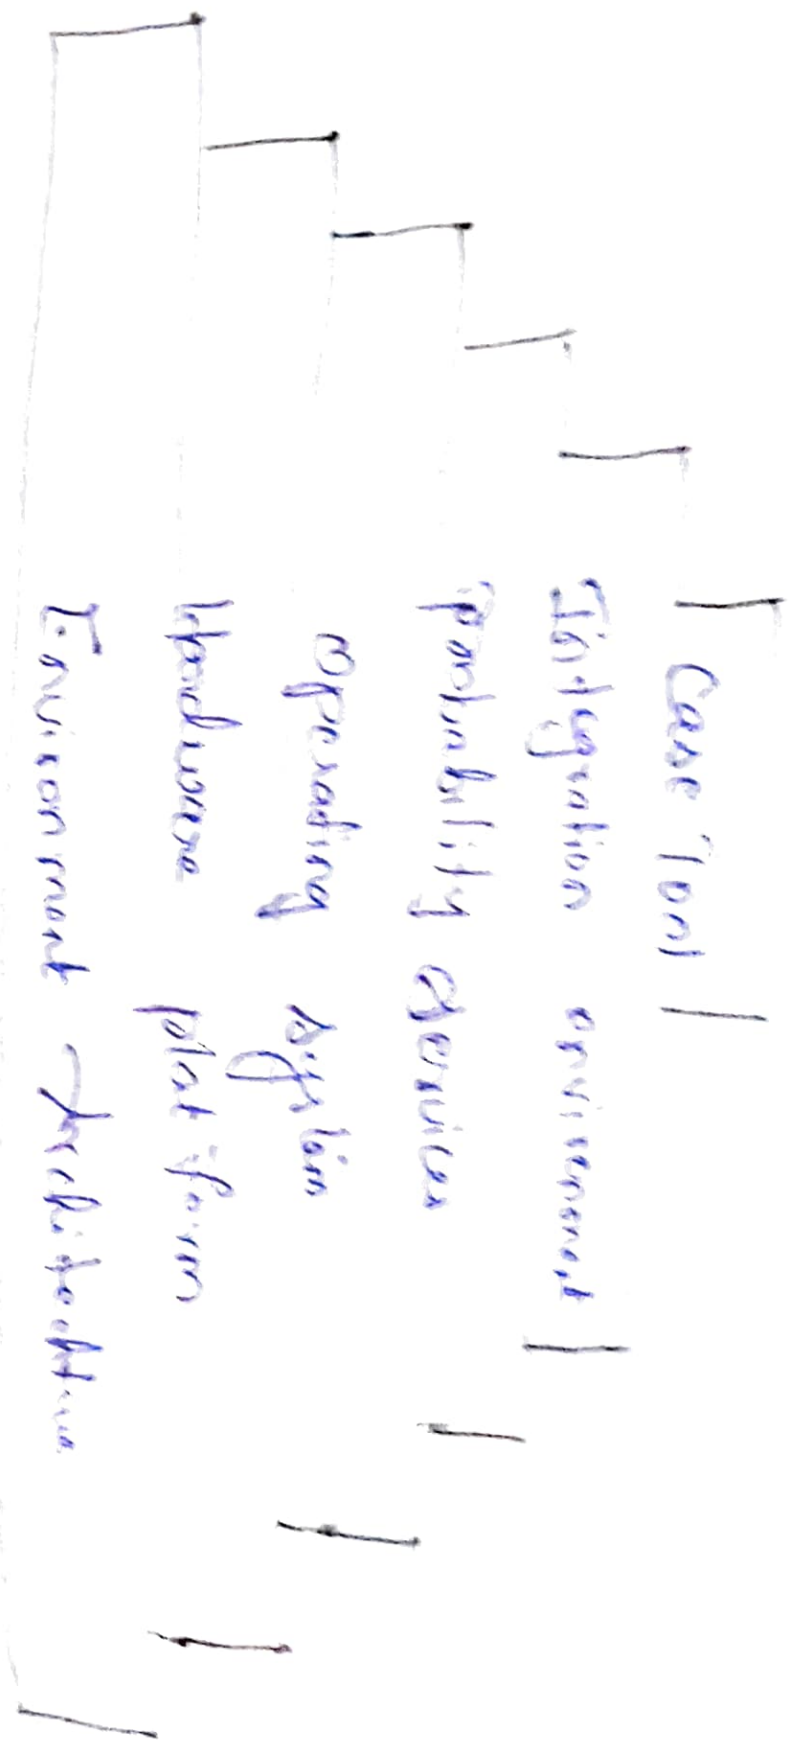 Case Tool
Integration environment
portability services
operating system
Hardware platform
Environment Architecture